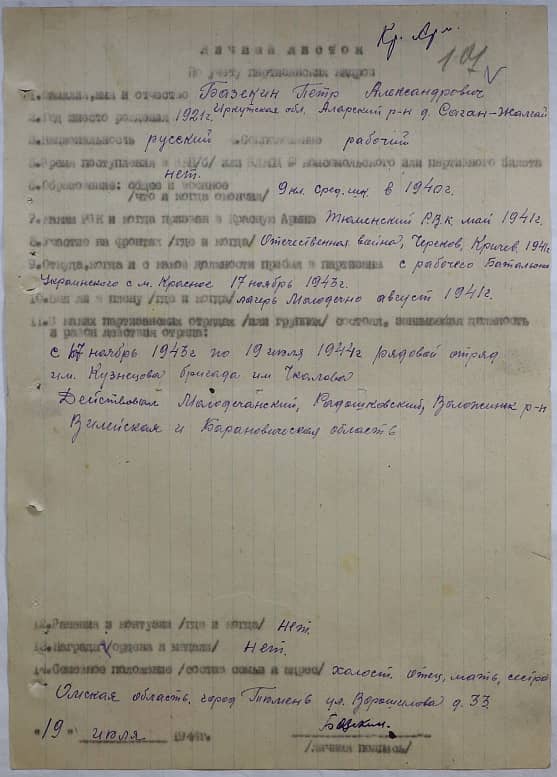 Кр. Ар.
107 V
ЛИЧНЫЙ ЛИСТОК
По учету партизанских кадров
1.Фамилия,имя и отчество Базекин Петр Александрович
2.Год и место рождения 1921г. Иркутская обл. Аларский р-н д. Саган-Жалгай
3.Национальность русский 4.Соцположение рабочий
5.Время поступления в ВКП/б/ или ВЛКСМ № комсомольского или партийного билета
нет.
6.Образование: общее и военное 9 кл. сред. шк. в 1940г.
/что и когда окончил/
7.Каким РВК и когда призван в Красную Армию Тюменский Р.В.К. май 1941г.
8.Участие на фронтах /где и когда/ Отечественная война, Чериков, Кричев, 1941г.
9.Откуда,когда и с какой должности прибыл в партизаны с рабочего Баталиона
Украинского с м. Красное 17 ноябрь 1943г.
10.Был ли в плену /где и когда/ лагерь Молодечно август 1941г.
11.В каких партизанских отрядах /или группах/ состоял, занимаемая должность
и район действия отряда:
с 17 ноябрь 1943г по 19 июля 1944г рядовой отряд
им. Кузнецова бригада им Чкалова
Действовал Молодечанский, Радошковский, Воложинск р-н
Вилейская и Барановическая область
12.Ранения и контузии /где и когда/ Нет.
13.Награды /ордена и медали/ Нет.
14.Семейное положение /состав семьи и адрес/ холост. отец, мать, сестра
Омская область, город Тюмень ул. Ворошилова д. 33
"19" июля 1944г.
/личная подпись/